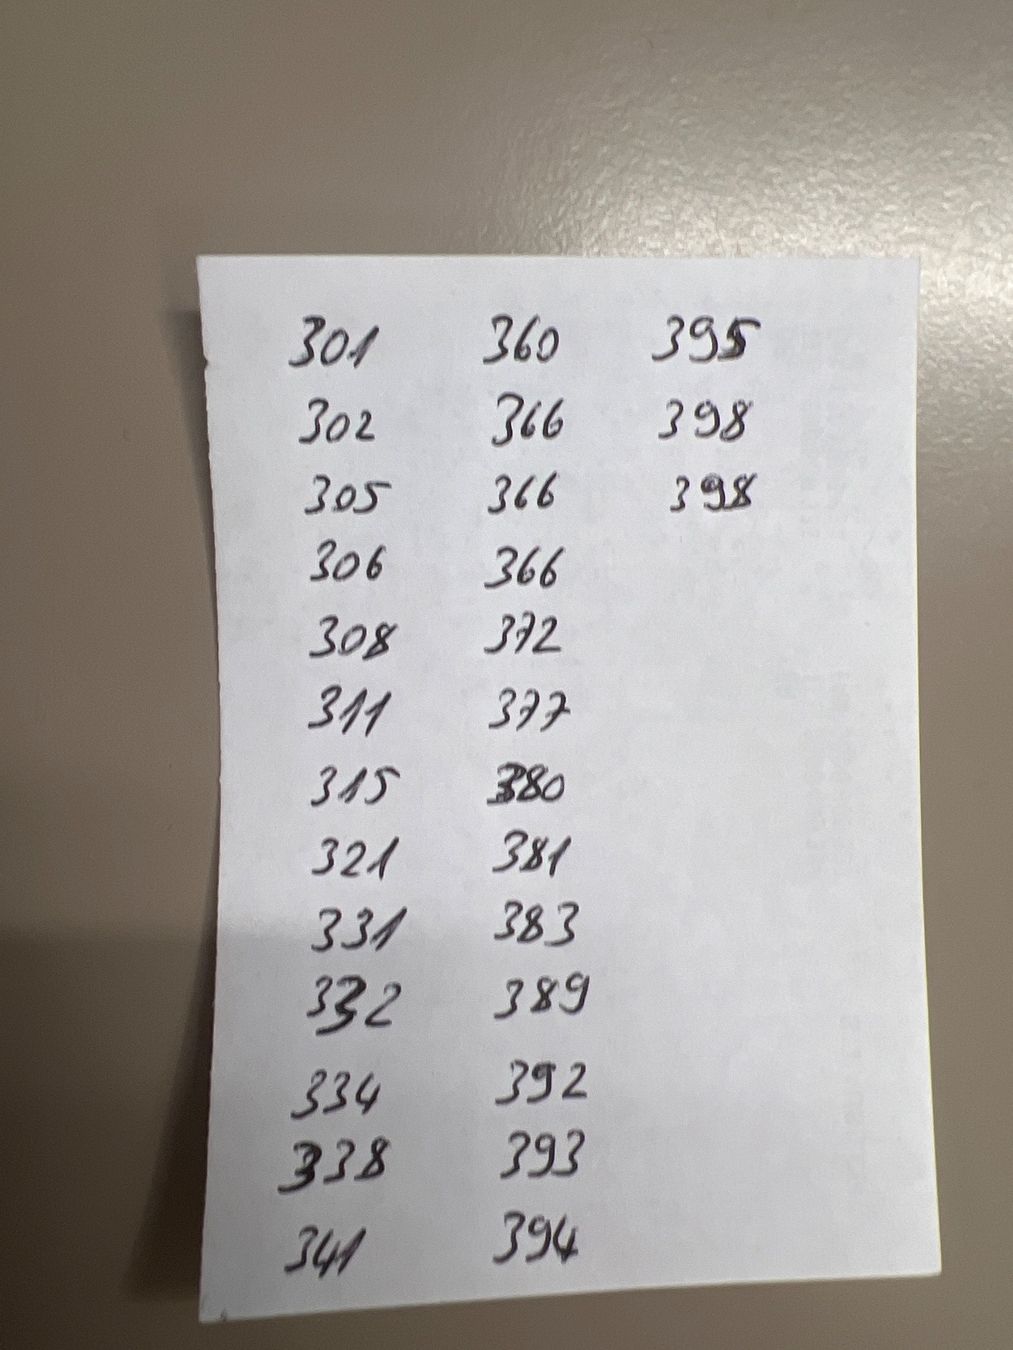 301 360 395
302 366 398
305 366 398
306 366
308 372
311 377
315 380
321 381
331 383
332 389
334 392
338 393
341 394